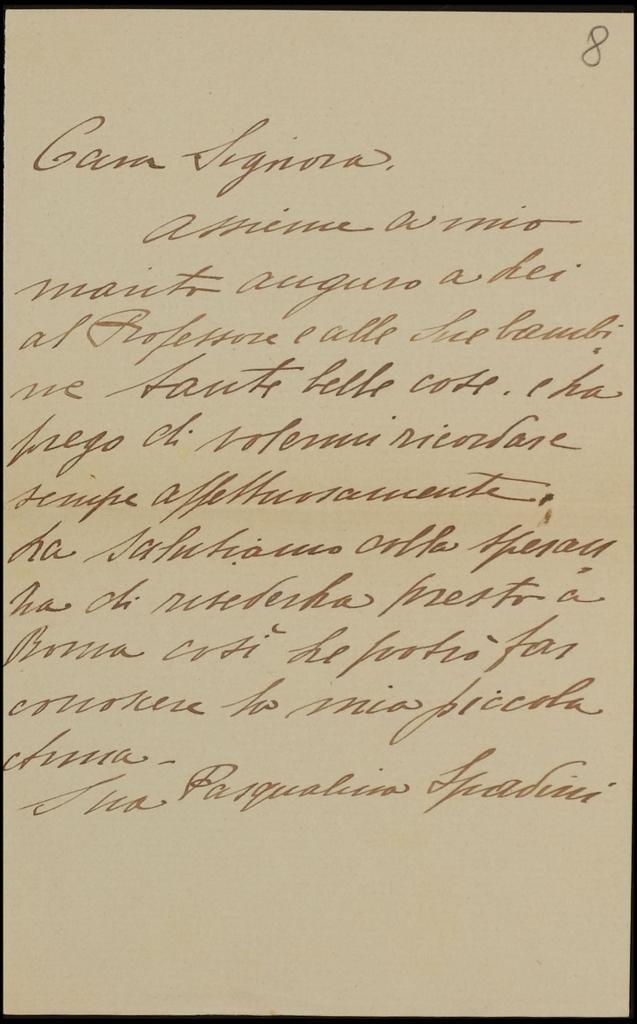 8
Cara Signora.
Assieme a mio
marito auguro a Lei
al Professore e alle Sue bambi
ne tante belle cose. e La
prego di volermi ricordare
sempe affettuosamente.
La salutiamo colla speran
za di rivederLa presto a
Roma così Le potrò far
conoscere la mia piccola
Anna-
Sua Pasqualina Spadini